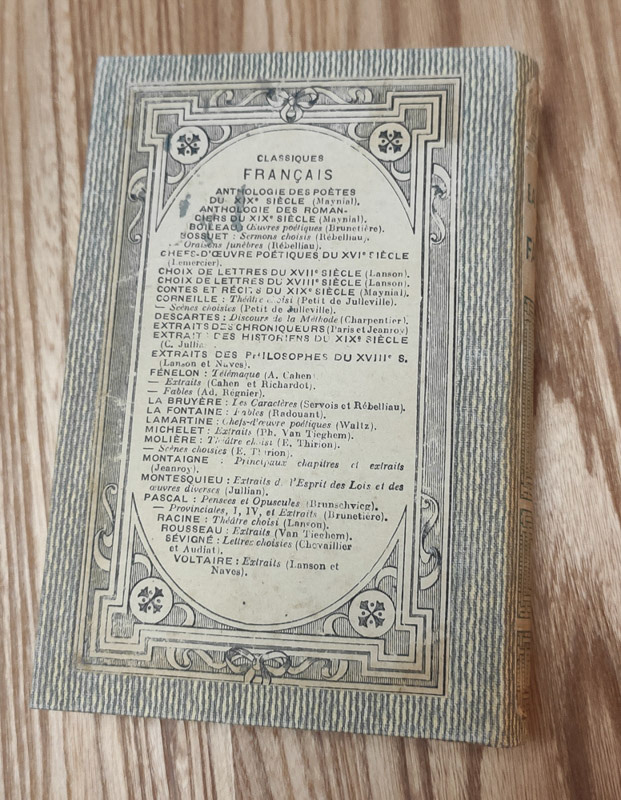 CLASSIQUES
FRANÇAIS
ANTHOLOGIE DES POÈTES
DU XIXᵉ SIÈCLE (Maynial).
ANTHOLOGIE DES ROMAN-
CIERS DU XIXᵉ SIÈCLE (Maynial).
BOILEAU Œuvres poétiques (Brunetière).
BOSSUET : Sermons choisis (Rébelliau).
— Oraisons funèbres (Rébelliau).
CHEFS-D'ŒUVRE POÉTIQUES DU XVIᵉ SIÈCLE
(Lemercier).
CHOIX DE LETTRES DU XVIIᵉ SIÈCLE (Lanson).
CHOIX DE LETTRES DU XVIIIᵉ SIÈCLE (Lanson).
CONTES ET RÉCITS DU XIXᵉ SIÈCLE (Maynial).
CORNEILLE : Théâtre choisi (Petit de Julleville).
— Scènes choisies (Petit de Julleville).
DESCARTES : Discours de la Méthode (Charpentier).
EXTRAITS DES CHRONIQUEURS (Paris et Jeanroy)
EXTRAITS DES HISTORIENS DU XIXᵉ SIÈCLE
(C. Jullian).
EXTRAITS DES PHILOSOPHES DU XVIIIᵉ S.
(Lanson et Naves).
FÉNELON : Télémaque (A. Cahen)
— Extraits (Cahen et Richardot).
— Fables (Ad. Régnier).
LA BRUYÈRE : Les Caractères (Servois et Rébelliau).
LA FONTAINE : Fables (Radouant).
LAMARTINE : Chefs-d'œuvre poétiques (Waltz).
MICHELET : Extraits (Ph. Van Tieghem).
MOLIÈRE : Théâtre choisi (E. Thirion).
— Scènes choisies (E. Thirion).
MONTAIGNE : Principaux chapitres et extraits
(Jeanroy).
MONTESQUIEU : Extraits de l'Esprit des Lois et des
œuvres diverses (Jullian).
PASCAL : Pensées et Opuscules (Brunschvicg).
— Provinciales, I, IV, et Extraits (Brunetière).
RACINE : Théâtre choisi (Lanson).
ROUSSEAU : Extraits (Van Tieghem).
SÉVIGNÉ : Lettres choisies (Chevaillier
et Audiat).
VOLTAIRE : Extraits (Lanson et
Naves).